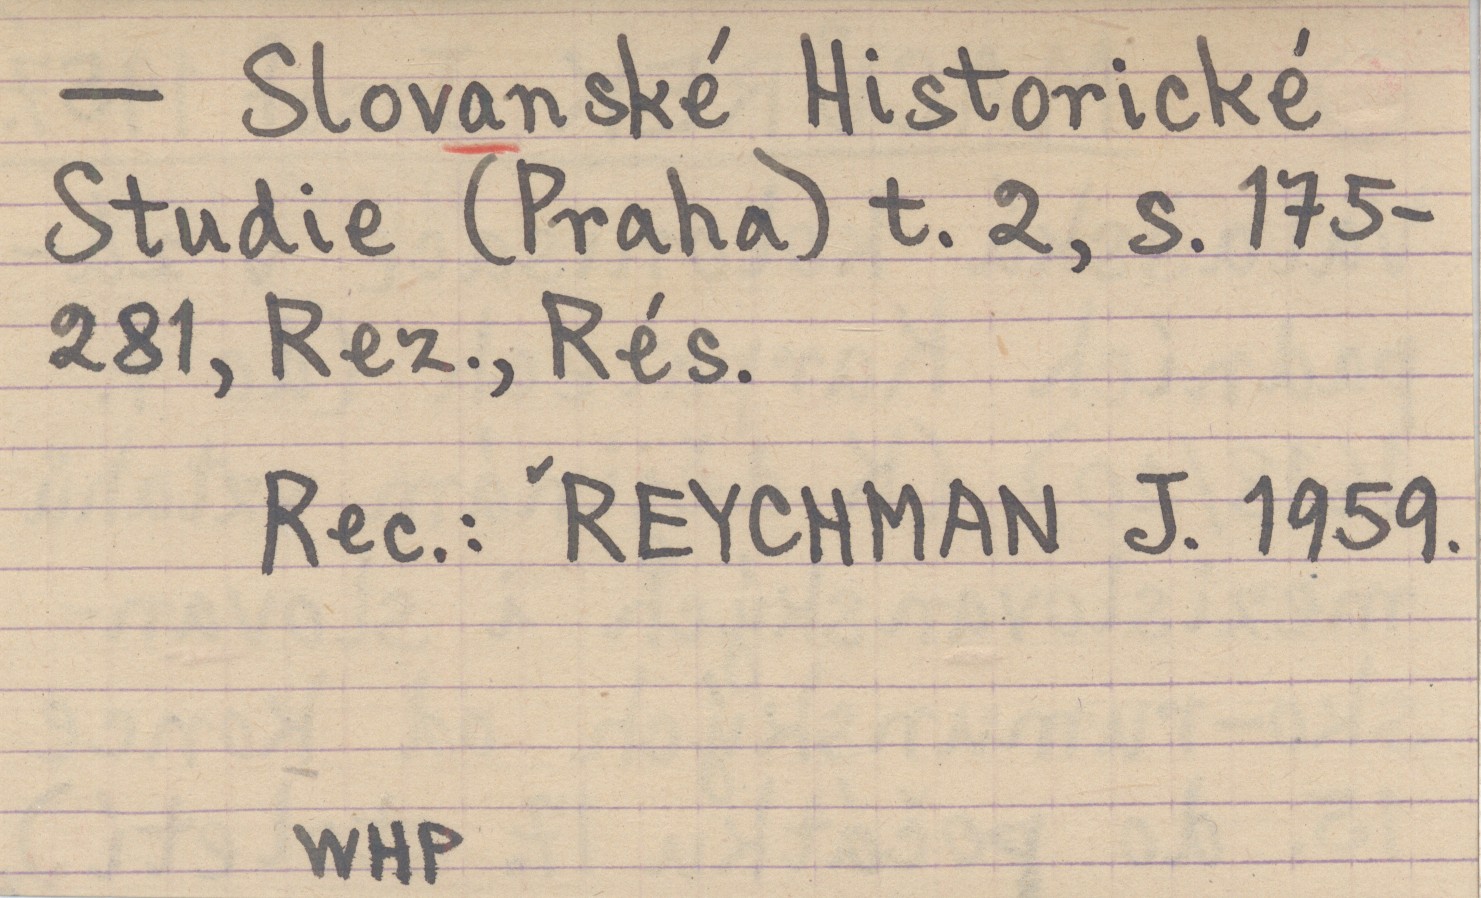 — Slovanské Historické
Studie (Praha) t. 2, s. 175-
281, Rez., Rés.
Rec.: ˇREYCHMAN J. 1959.
WHP